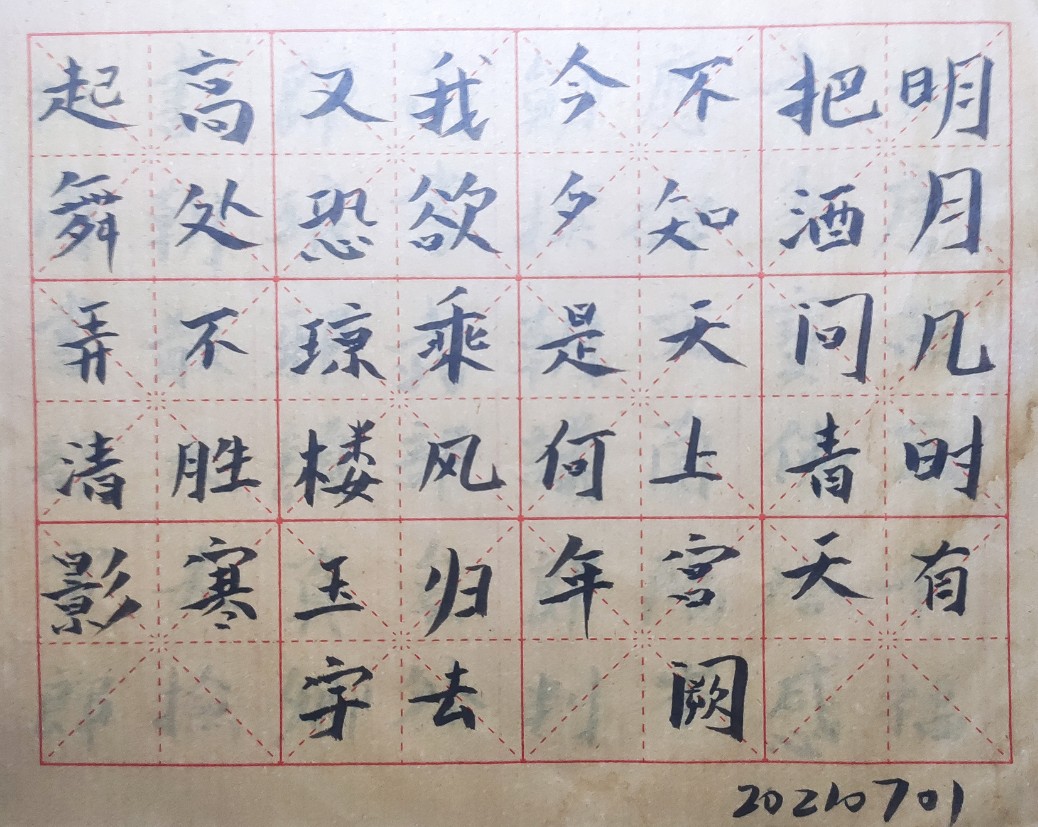 明月几时有
把酒问青天
不知天上宫阙
今夕是何年
我欲乘风归去
又恐琼楼玉宇
高处不胜寒
起舞弄清影
20210701